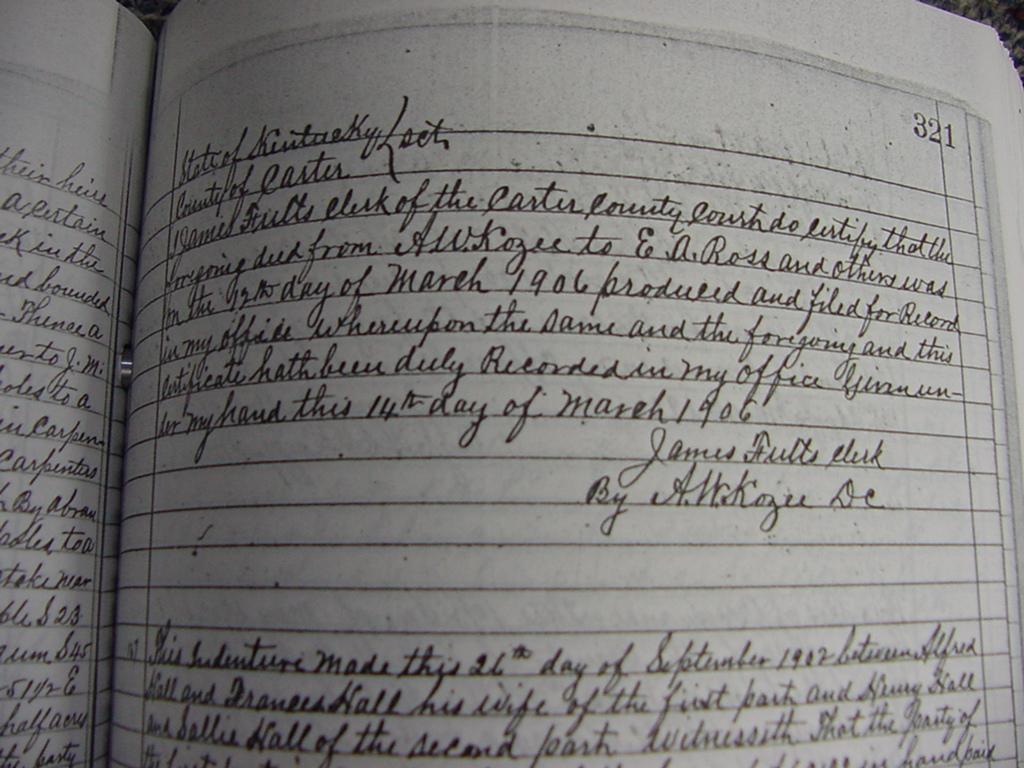 their heirs
a certain
ck in the
nd bounded
Thence a
J. M.
oles to a
in Carpen-
Carpenters
By a
to a
stake near
ple S 23
gum S 45
51 1/2 E
half acres
the party
321
State of Kentucky { Sct
County of Carter
I James Fults Clerk of the Carter County Court do certify that the
foregoing deed from A.W. Kozee to E. A. Ross and others was
on the 12th day of March 1906 produced and filed for Record
in my office whereupon the same and the foregoing and this
certificate hath been duly Recorded in my office Given un-
der my hand this 14th day of March 1906
James Fults Clerk
By A.W. Kozee DC
This Indenture made this 26th day of September 1902 between Alfred
Hall and Frances Hall his wife of the first part and Henry Hall
and Sallie Hall of the second part Witnesseth That the Party of
the first in hand paid